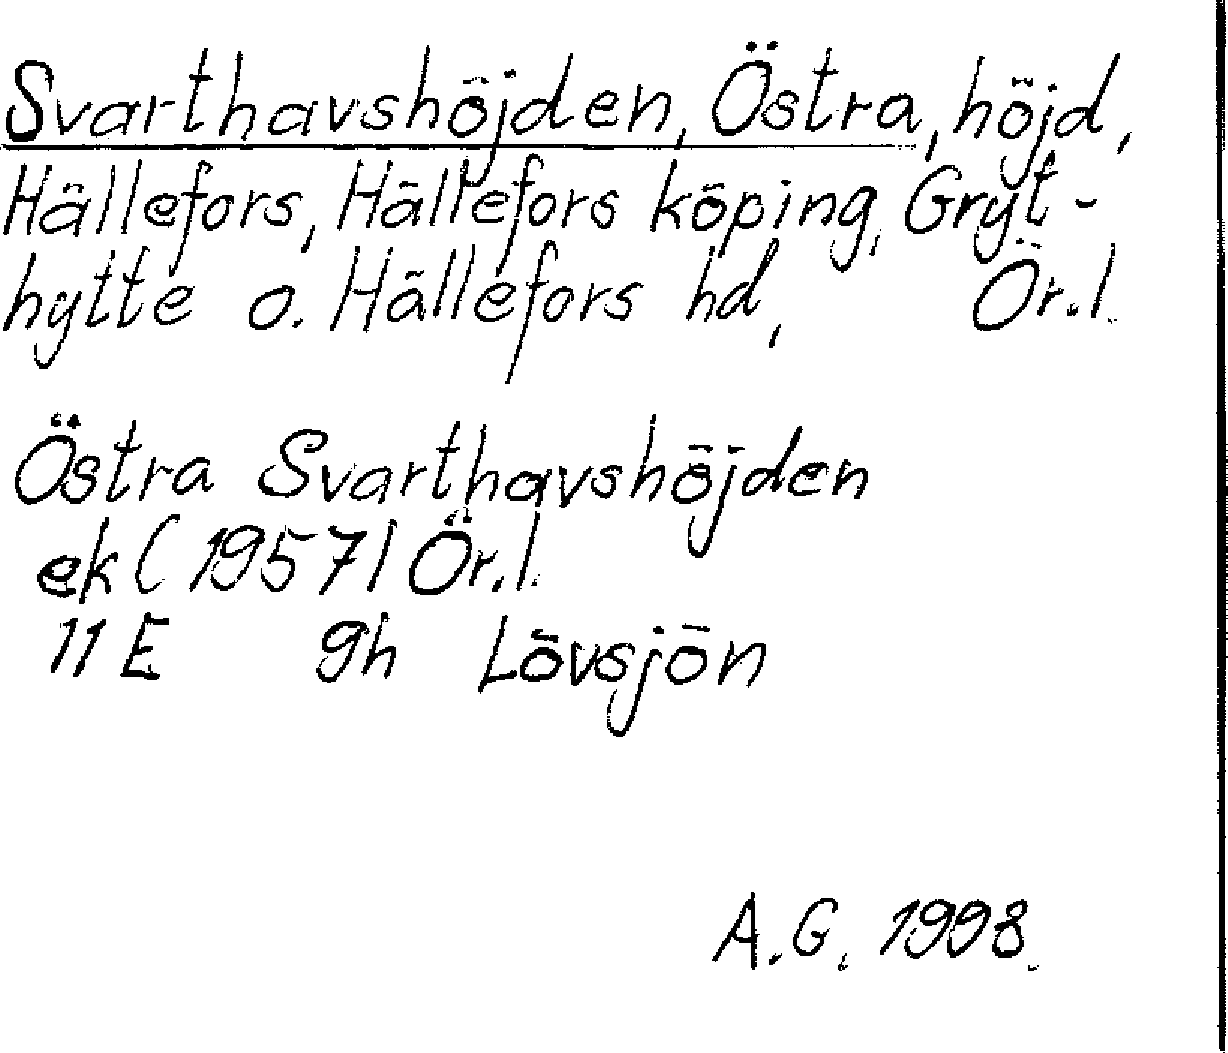 Svarthavshöjden, Östra, höjd,
Hällefors, Hällefors köping, Gryt-
hytte o. Hällefors hd, Ör.l.
Östra Svarthavshöjden
ek (1957) Ör.l.
11 E 9h Lövsjön
A.G. 1998.